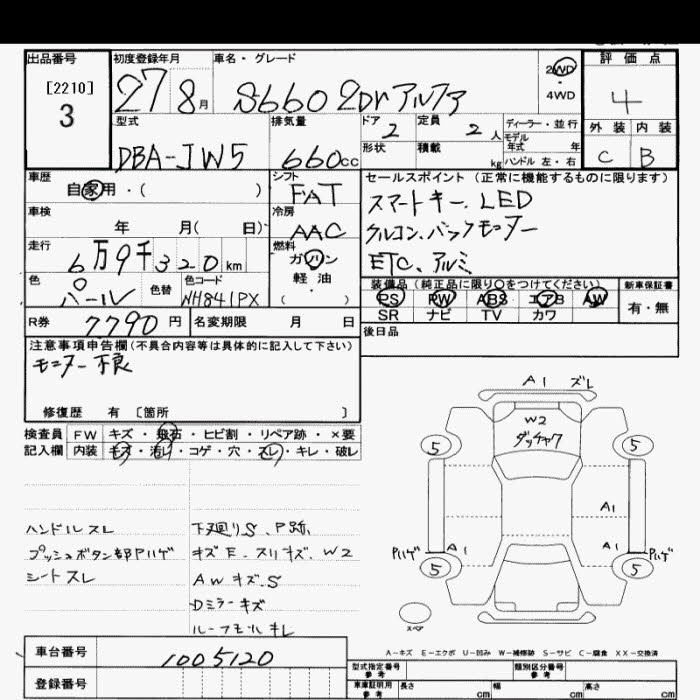 出品番号
[2210]
3
初度登録年月
27 8月
車名・グレード
S660 2Dr アルファ
2WD
4WD
評価点
4
外装 内装
C B
型式
DBA-JW5
排気量
660cc
ドア 2
定員 2人
形状
積載 kg
ディーラー・並行
モデル年式 年
ハンドル 左・右
車歴
自家用・( )
シフト
FAT
セールスポイント (正常に機能するものに限ります)
スマートキー、LED
クルコン、バックモニター
ETC、アルミ
車検
年 月( 日)
冷房
AAC
走行
6万9千320km
燃料
ガソリン
軽油
( )
色
パール
色替
色コード
NH841PX
装備品 (純正品に限り○をつけてください)
PS PW ABS エアB AW
SR ナビ TV カワ
新車保証書
有・無
R券 7790円
名変期限 月 日
後日品
注意事項申告欄(不具合内容等は具体的に記入して下さい)
モニター不良
修復歴 有 〔箇所 〕
検査員 FW キズ・飛石・ヒビ割・リペア跡・×要
記入欄 内装 キズ・汚れ・コゲ・穴・スレ・キレ・破レ
ハンドルスレ
プッシュボタン部Pハゲ
シートスレ
下廻りS、P跡
キズE、スリキズ、W2
AWキズ、S
Dミラーキズ
ルーフモールキレ
A1 ズレ
W2
5
5
A1
Pハゲ
A1
A1
Pハゲ
5
5
スペア
A-キズ E-エクボ U-凹み W-補修跡 S-サビ C-腐食 XX-交換済
車台番号 1005120
登録番号
型式指定番号
参考
類別区分番号
参考
車庫証明用
参考
長さ cm
幅 cm
高さ cm